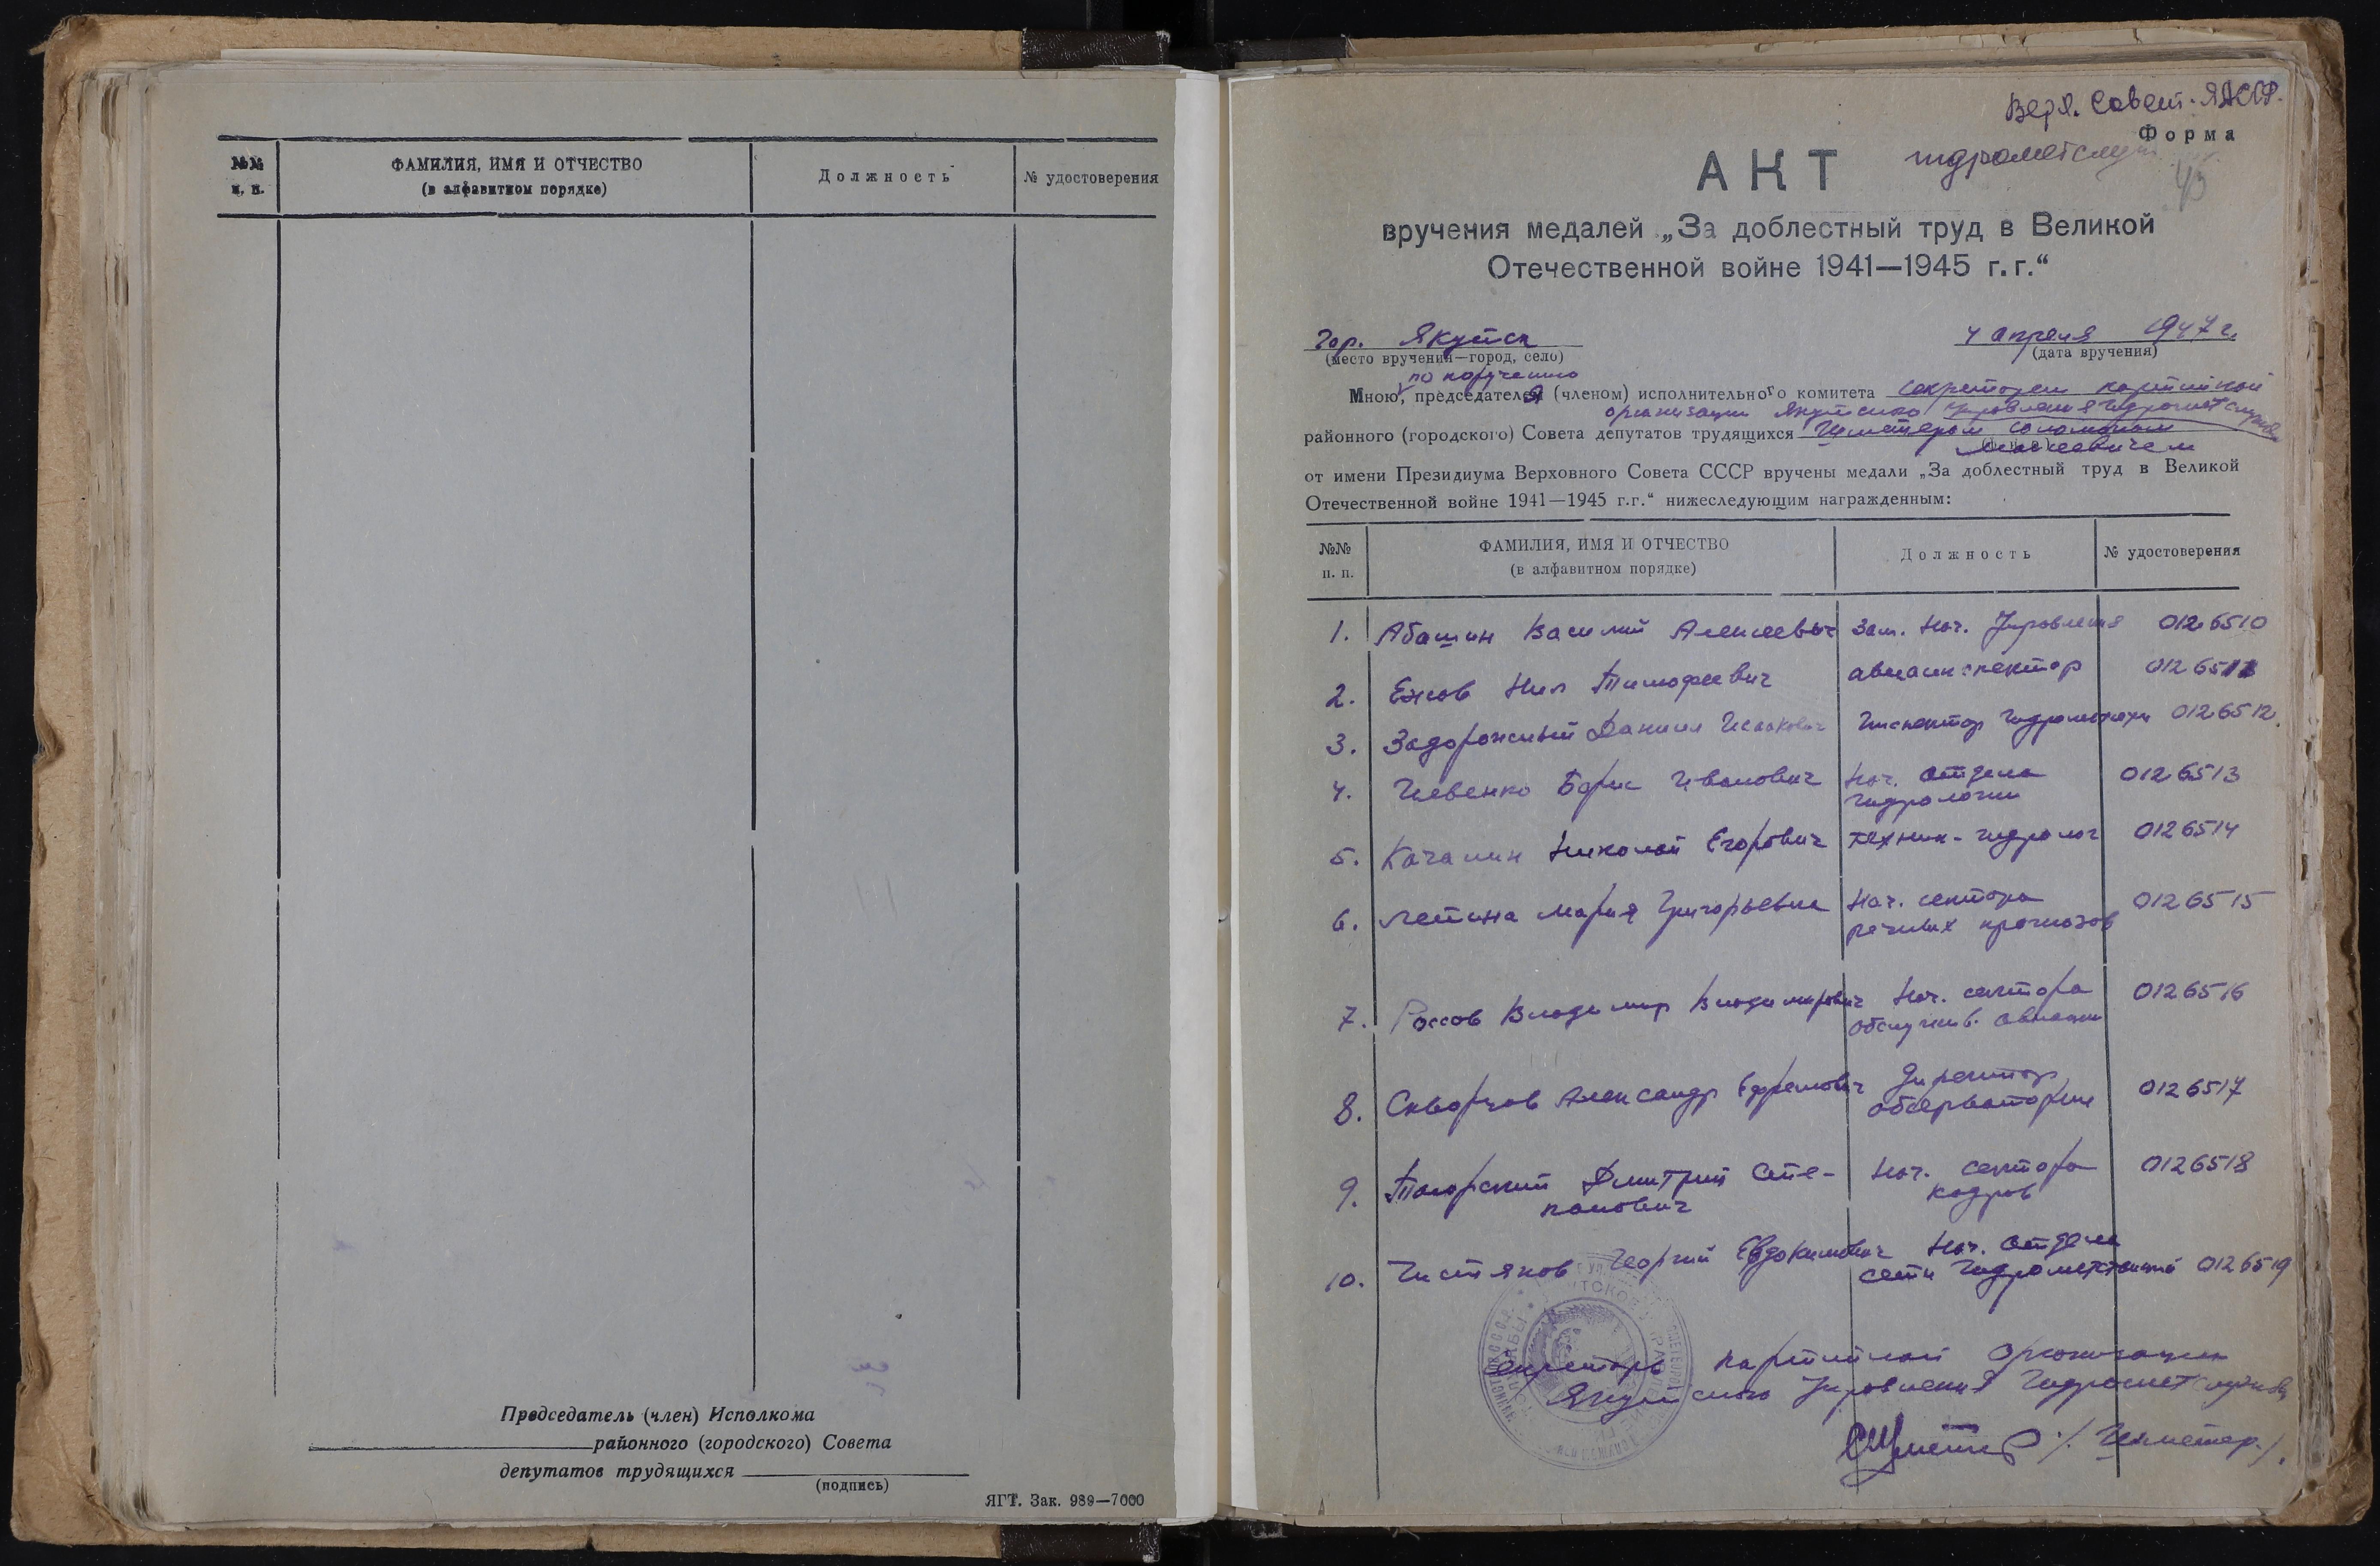 №№
п. п.
ФАМИЛИЯ, ИМЯ И ОТЧЕСТВО
(в алфавитном порядке)
Должность
№ удостоверения
Председатель (член) Исполкома
районного (городского) Совета
депутатов трудящихся
(подпись)
ЯГТ. Зак. 989—7000
Верх. Совет. ЯАССР.
Форма
гидрометслуж
45
АКТ
вручения медалей „За доблестный труд в Великой
Отечественной войне 1941—1945 г.г.“
Гор. Якутск
4 апреля 1947 г.
(место вручения—город, село)
(дата вручения)
по поручению
Мною, председателя (членом) исполнительного комитета секретарем партийной
организации Якутского Управления Гидрометслужбы
районного (городского) Совета депутатов трудящихся Соломоном
Моисеевичем
от имени Президиума Верховного Совета СССР вручены медали „За доблестный труд в Великой
Отечественной войне 1941—1945 г.г.“ нижеследующим награжденным:
№№
п. п.
ФАМИЛИЯ, ИМЯ И ОТЧЕСТВО
(в алфавитном порядке)
Должность
№ удостоверения
1. Абашин Василий Алексеевич Зам. Нач. Управления 0126510
2. Ежов Нил Тимофеевич авиаинспектор 0126511
3. Задорожный Даниил Исаакович Инспектор 0126512
4. Иевенко Борис Иванович Нач. отдела 0126513
гидрологии
5. Качалин Николай Егорович техник-гидролог 0126514
6. Летина Мария Григорьевна Нач. сектора 0126515
речных прогнозов
7. Россов Владимир Владимирович Нач. сектора 0126516
обслужив. авиации
8. Скворцов Александр Ефремович Директор 0126517
обсерватории
9. Дмитрий Сте- Нач. сектора 0126518
панович кадров
10. Чистяков Георгий Евдокимович Нач. отдела
сети Гидрометстанций 0126519
Секретарь партийной организации
Якутского Управления Гидрометслужбы